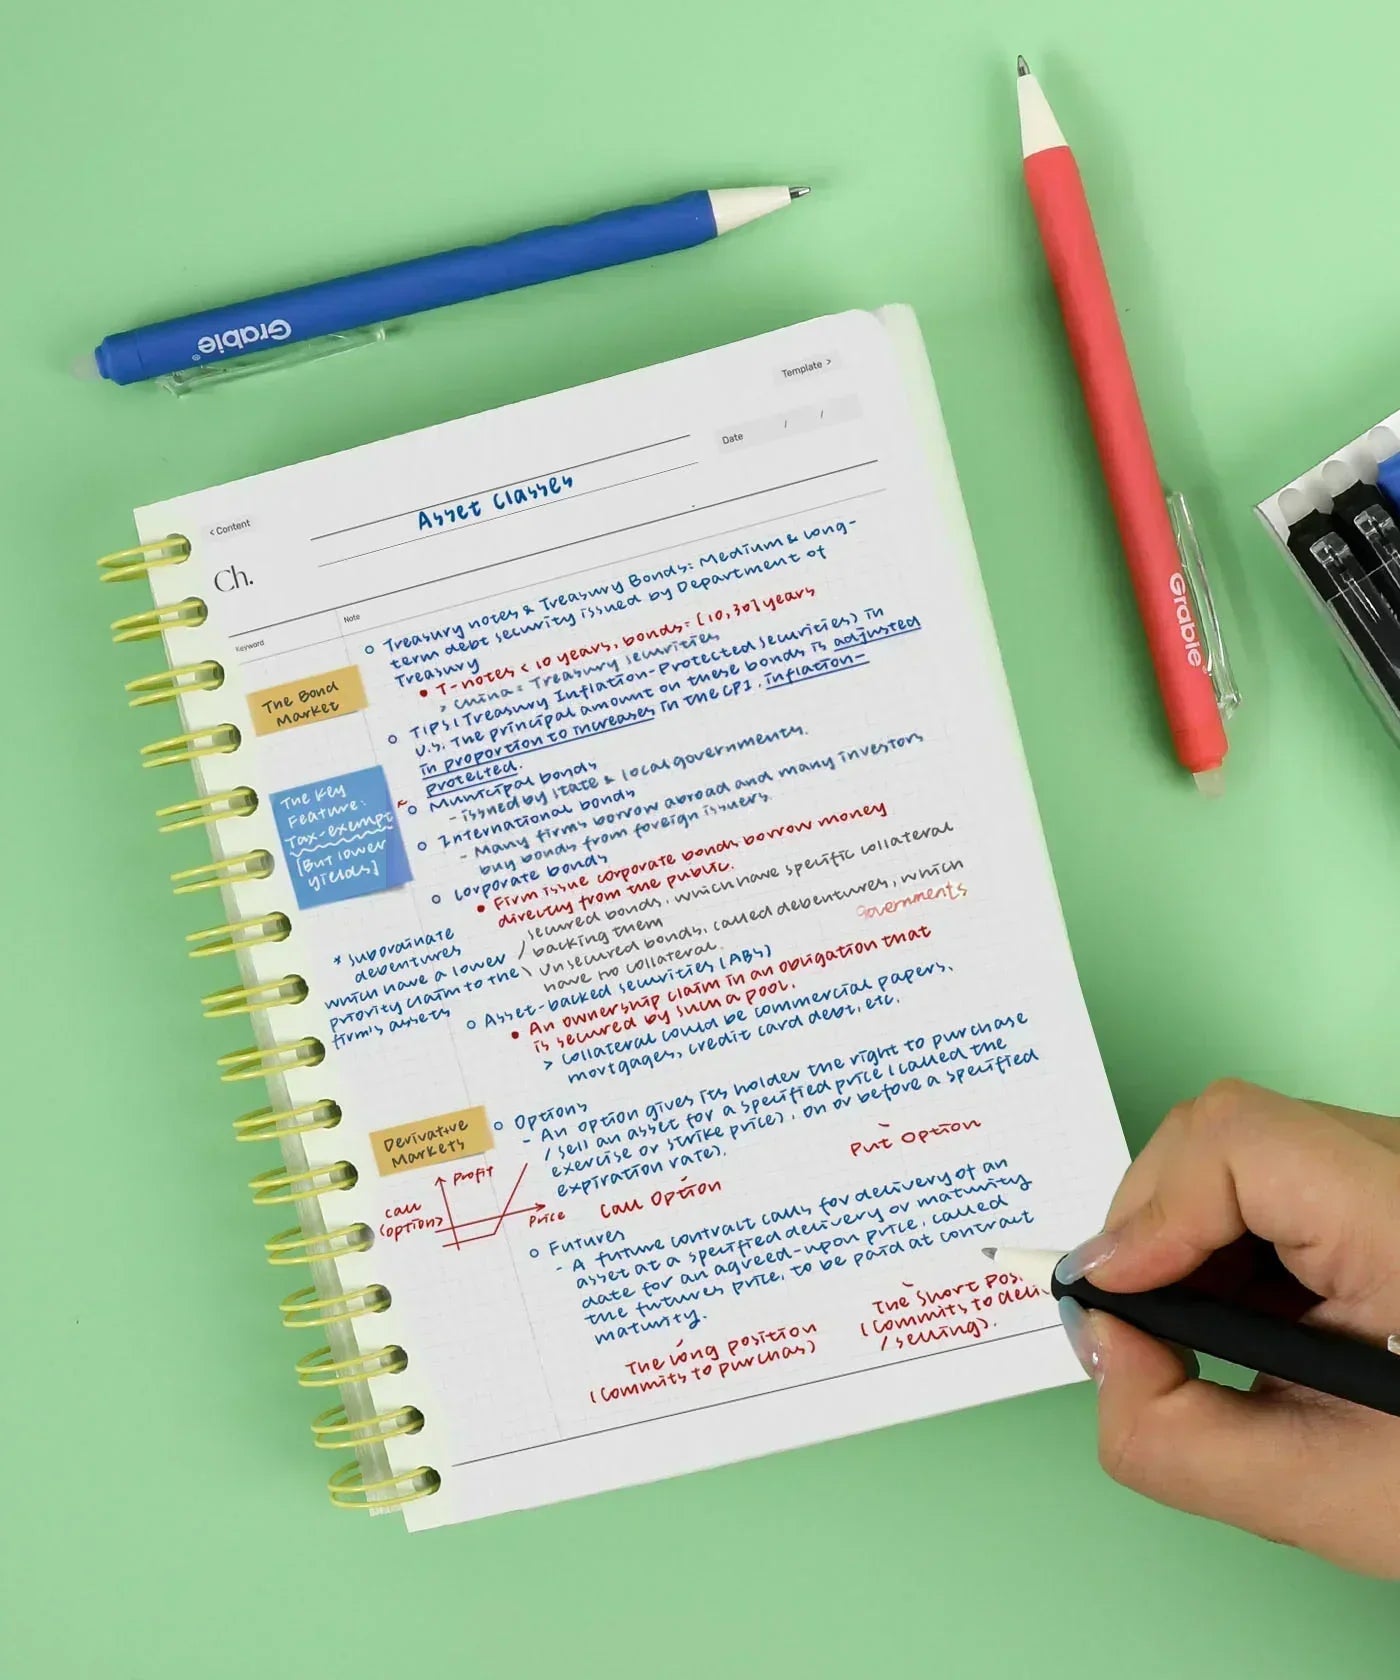 Grabie
Grabie
Template >
Date / /
< Content
Asset Classes
Ch.
Keyword
Note
The Bond
Market
o Treasury notes & Treasury Bonds: Medium & long-
term debt security issued by Department of
Treasury
• T-notes < 10 years, bonds = [10,30] years
> China = Treasury securities
o TIPS (Treasury Inflation-Protected Securities) in
U.S. The principal amount on these bonds is adjusted
in proportion to increases in the CPI. inflation-
protected.
The Key
Feature:
Tax-exempt
[But lower
yields]
o Municipal bonds
- issued by state & local governments.
o International bonds
- Many firms borrow abroad and many investors
buy bonds from foreign issuers.
o Corporate bonds
• Firm issue corporate bonds borrow money
directly from the public.
secured bonds, which have specific collateral
/ backing them
\ Unsecured bonds, called debentures, which
have no collateral.
governments
* subordinate
debentures
which have a lower
priority claim to the
firm's assets
o Asset-backed securities (ABS)
• An ownership claim in an obligation that
is secured by such a pool.
> collateral could be commercial papers,
mortgages, credit card debt, etc.
Derivative
Markets
o Options
- An option gives its holder the right to purchase
/ sell an asset for a specified price (called the
exercise or strike price), on or before a specified
expiration rate).
Put Option
Call Option
profit
call
(option)
Price
o Futures
- A future contract calls for delivery of an
asset at a specified delivery or maturity
date for an agreed-upon price, called
the futures price, to be paid at contract
maturity.
The long position
(commits to purchas)
The short pos
(commits to deli
/ selling).